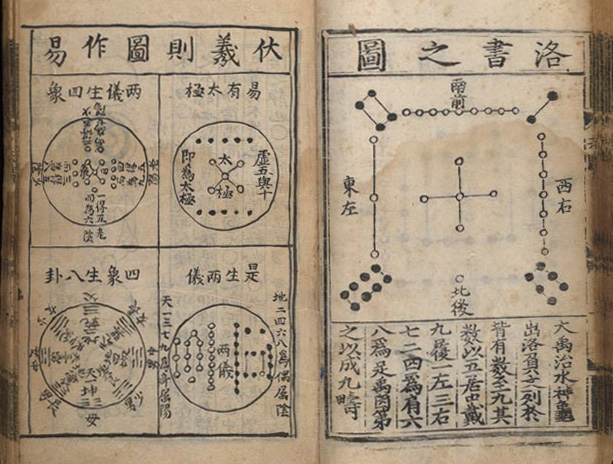 洛書之圖
南前
西右
東左
北後
大禹治水神龜
出洛負文列於
背有數至九其
數以五居中戴
九履一左三右
七二四為肩六
八為足禹因第
之以成九疇
伏羲則圖作易
易有太極
虛五與十
太極
即為太極
兩儀生四象
是生兩儀
地二四六八為偶屬陰
兩儀
天一三七九為奇屬陽
四象生八卦